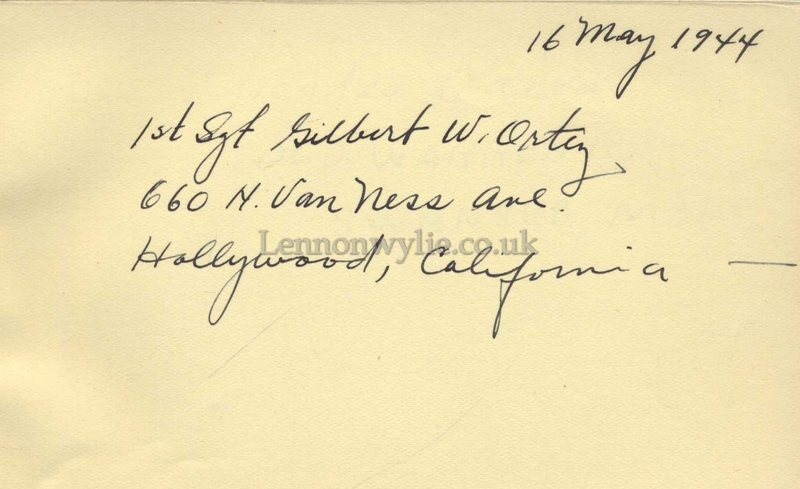 16 May 1944
1st Sgt Gilbert W. Ortiz
660 N. Van Ness Ave.
Lennonwylie.co.uk
Hollywood, California —